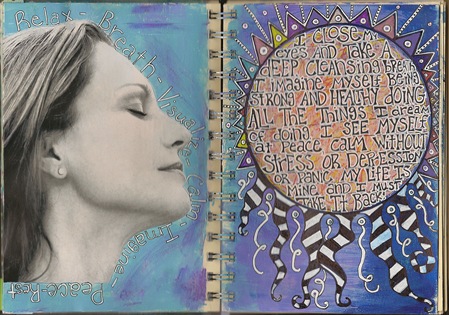 Relax - Breathe - Visualize - Calm - Imagine -
Peace - Rest
I CLOSE MY
AND TAKE A
DEEP CLEANSING BREATH
I imagine MYSELF BEING
STRONG AND HEALTHY DOING
ALL THE THINGS I dream
OF doing I SEE MYSELF
AT PEACE CALM WITHOUT
STRESS OR DEPRESSION
OR PANIC MY LIFE IS
MINE and I MUST
TAKE IT BACK